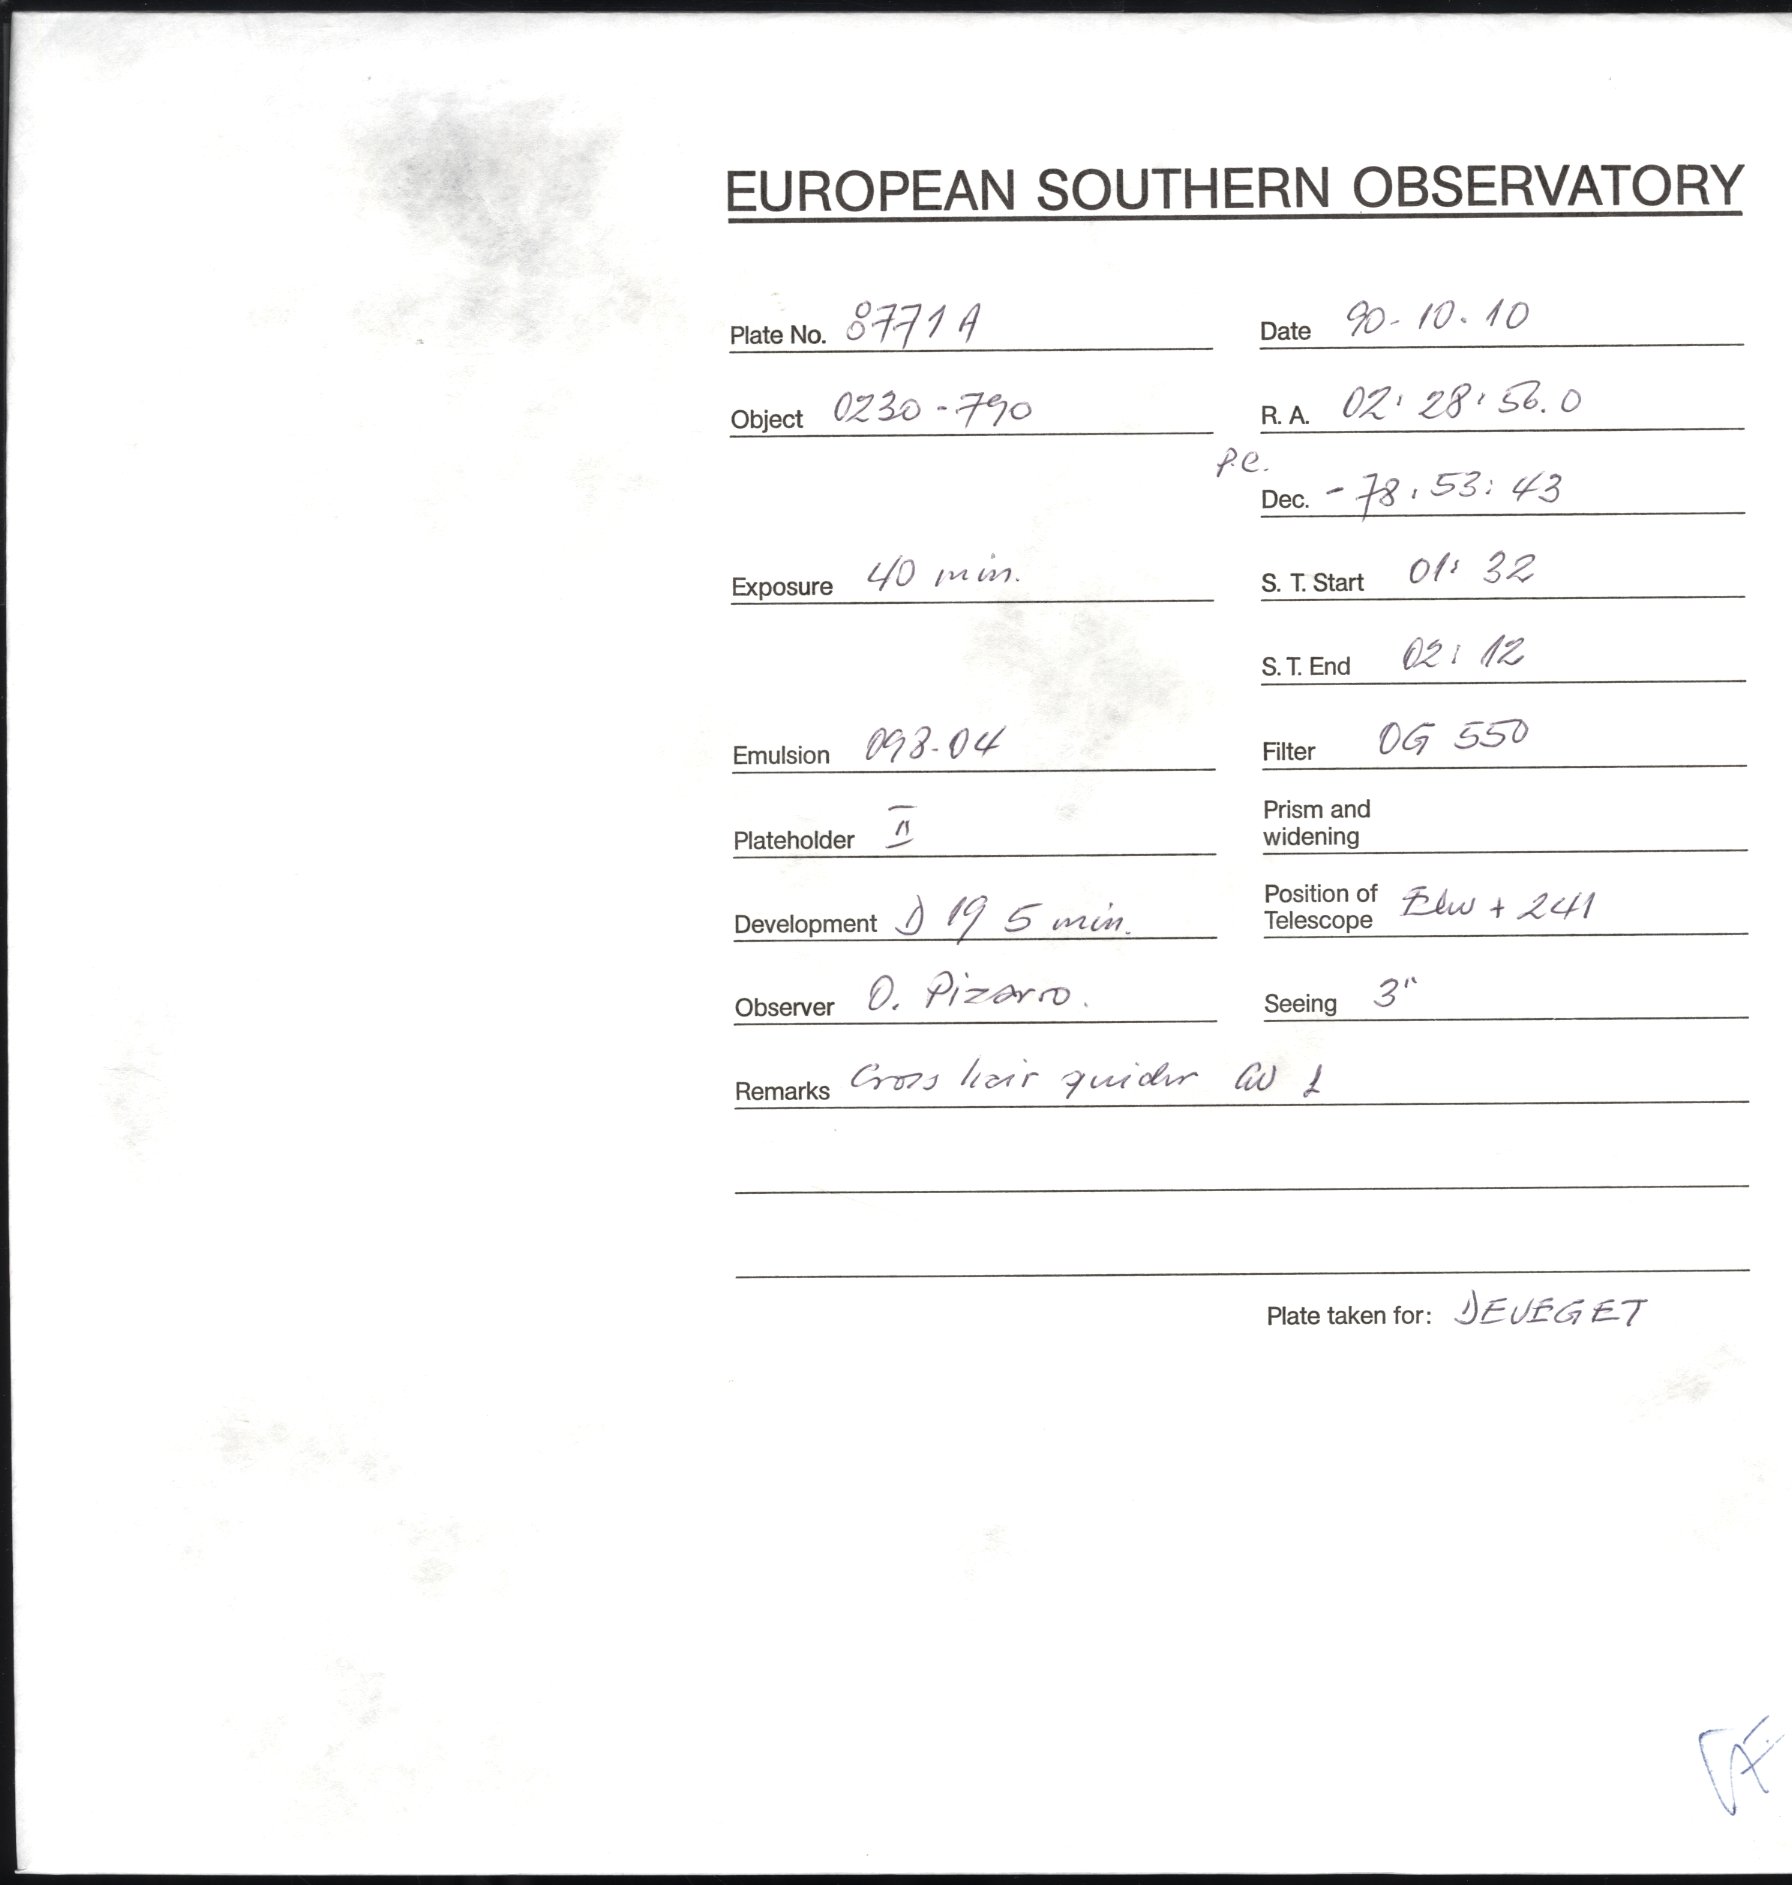 EUROPEAN SOUTHERN OBSERVATORY
Plate No. 8771 A
Date 90-10-10
Object 0230-790
R. A. 02:28:56.0
P.C.
Dec. -78:53:43
Exposure 40 min.
S. T. Start 01:32
S. T. End 02:12
Emulsion 098-04
Filter OG 550
Plateholder II
Prism and
widening
Development D 19 5 min.
Position of
Telescope + 241
Observer O. Pizarro.
Seeing 3"
Remarks Cross hair guider
Plate taken for: DEVEGET